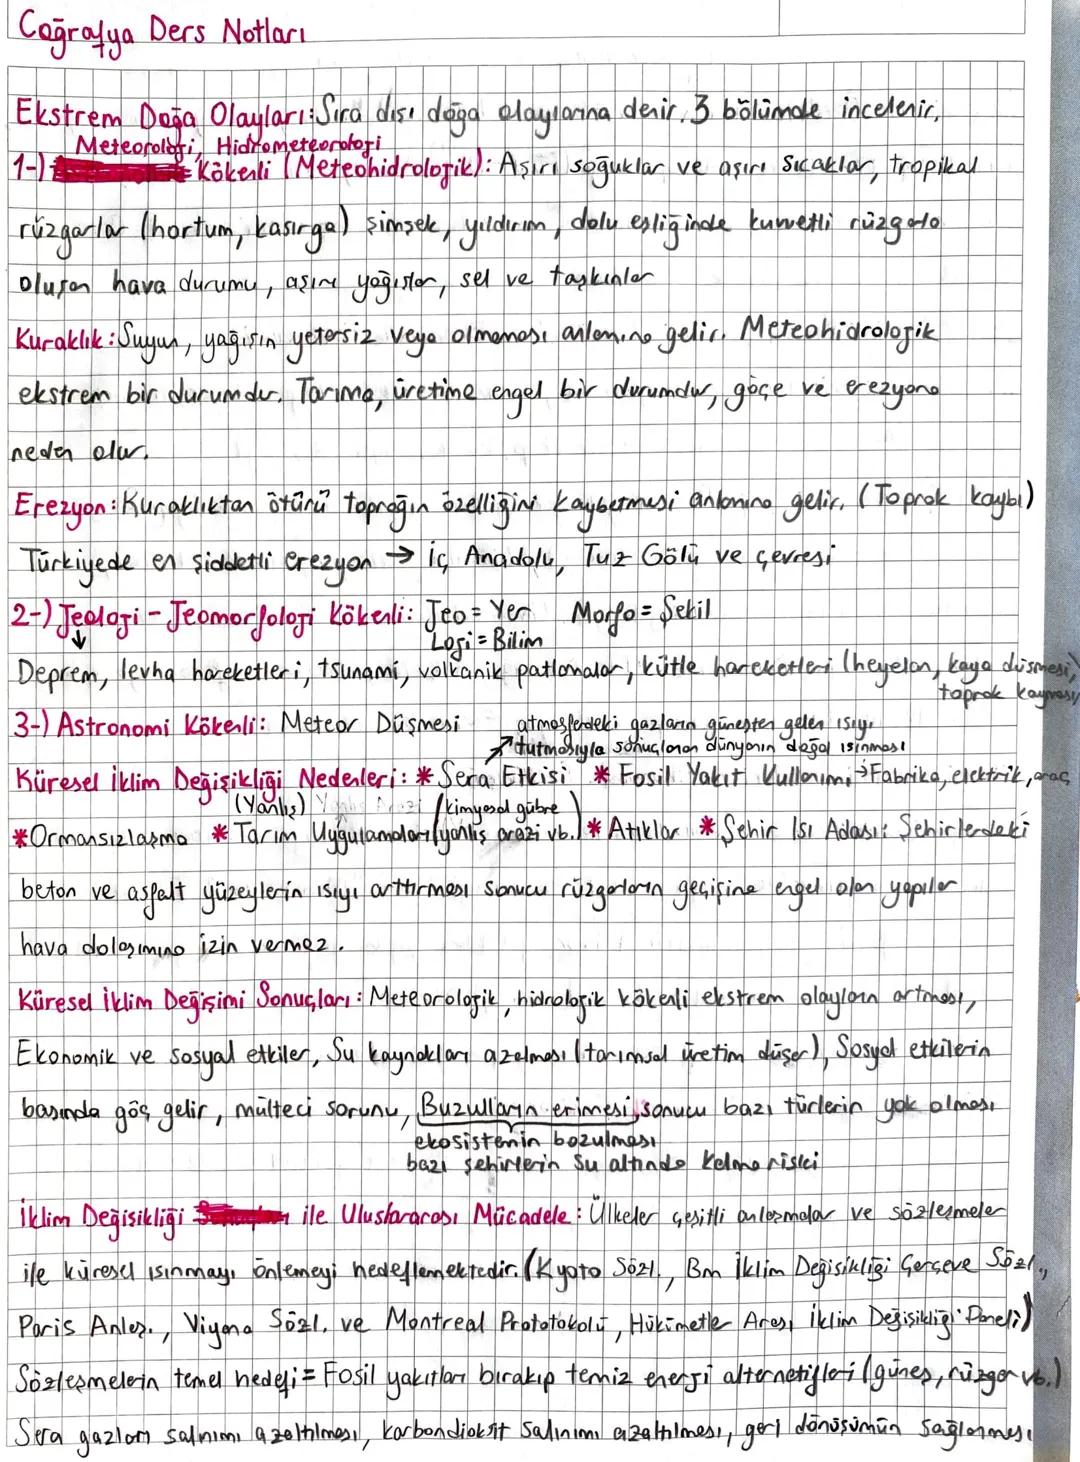 Coğrafya Ders Notları
Ekstrem Doğa Olayları: Sıra dışı doğa olaylarına denir. 3 bölümde incelenir.
Meteoroloji, Hidrometeoroloji
1-) Kökenli (Meteohidrolojik): Aşırı soğuklar ve aşırı sıcaklar, tropikal
rüzgarlar (hortum, kasırga) şimşek, yıldırım, dolu eşliğinde kuvvetli rüzgarla
oluşan hava durumu, aşırı yağışlar, sel ve taşkınlar
Kuraklık: Suyun, yağışın yetersiz veya olmaması anlamına gelir. Meteohidrolojik
ekstrem bir durumdur. Tarıma, üretime engel bir durumdur, göçe ve erezyona
neden olur.
Erezyon: Kuraklıktan ötürü toprağın özelliğini kaybetmesi anlamına gelir. (Toprak kaybı)
Türkiyede en şiddetli erezyon → İç Anadolu, Tuz Gölü ve çevresi
2-) Jeoloji - Jeomorfoloji Kökenli: Jeo = Yer Morfo = Şekil
↓ Loji = Bilim
Deprem, levha hareketleri, tsunami, volkanik patlamalar, kütle hareketleri (heyelan, kaya düşmesi,
toprak kayması)
3-) Astronomi Kökenli: Meteor Düşmesi
atmosferdeki gazların güneşten gelen ısıyı
tutmasıyla sonuçlanan dünyanın doğal ısınması
Küresel İklim Değişikliği Nedenleri: * Sera Etkisi * Fosil Yakıt Kullanımı → Fabrika, elektrik, araç
(Yanlış) (kimyasal gübre
*Ormansızlaşma * Tarım Uygulamaları yanlış arazi vb.) * Atıklar * Şehir Isı Adası: Şehirlerdeki
beton ve asfalt yüzeylerin ısıyı arttırması sonucu rüzgarların geçişine engel olan yapılar
hava dolaşımına izin vermez.
Küresel İklim Değişimi Sonuçları: Meteorolojik, hidrolojik kökenli ekstrem olayların artması,
Ekonomik ve sosyal etkiler, Su kaynakları azalması (tarımsal üretim düşer), Sosyal etkilerin
başında göç gelir, mülteci sorunu, Buzulların erimesi, sonucu bazı türlerin yok olması
ekosistemin bozulması
bazı şehirlerin su altında kalma riski
İklim Değişikliği ile Uluslararası Mücadele: Ülkeler çeşitli anlaşmalar ve sözleşmeler
ile küresel ısınmayı önlemeyi hedeflemektedir. (Kyoto Sözl., Bm İklim Değişikliği Çerçeve Sözl.,
Paris Anlaş., Viyana Sözl. ve Montreal Prototokolü, Hükümetler Arası İklim Değişikliği Paneli)
Sözleşmelerin temel hedefi = Fosil yakıtları bırakıp temiz enerji alternatifleri (güneş, rüzgar vb.)
Sera gazların salınımı azaltılması, karbondioksit salınımı azaltılması, geri dönüşümün sağlanması